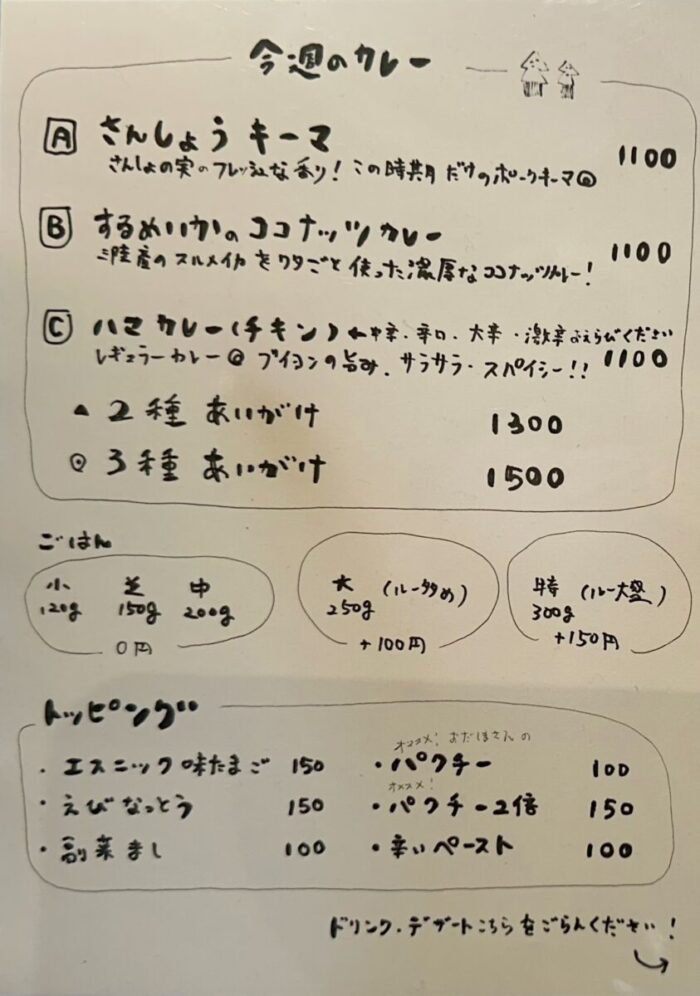 今週のカレー
A さんしょうキーマ 1100
さんしょの実のフレッシュな香り！この時期だけのポークキーマ
B するめいかのココナッツカレー 1100
三陸産のスルメイカをワタごと使った濃厚なココナッツカレー！
C ハマカレー(チキン) ←中辛・辛口・大辛・激辛よえらびください
レギュラーカレー ブイヨンの旨み、サラサラ・スパイシー！！ 1100
▲ 2種あいがけ 1300
◎ 3種あいがけ 1500
ごはん
小 120g 芝 150g 中 200g
0円
大 250g (ルー多め)
+100円
特 300g (ルー大盛)
+150円
トッピング
・エスニック味たまご 150
・えびなっとう 150
・副菜まし 100
オススメ！おだほさんの
・パクチー 100
オススメ！
・パクチー2倍 150
・辛いペースト 100
ドリンク・デザートこちらをごらんください！